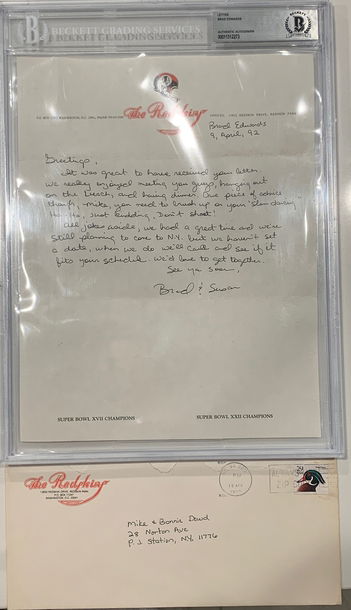 BECKETT GRADING SERVICES
LETTER
BRAD EDWARDS
AUTHENTIC AUTOGRAPH
BECKETT
The Redskins
Brad Edwards
9, April, 92
Greetings,
It was great to have received your letter.
We really enjoyed meeting you guys, hanging out
on the beach, and having dinner. One piece of advice
though, Mike, you need to brush up on your "slam dancing"
Ha Ha, Just kidding. Don't shoot!
All jokes aside, we had a great time and we're
still planning to come to N.Y. but we haven't set
a date, when we do we'll call and see if it
fits your schedule. We'd love to get together.
See ya soon,
Brad & Susan
SUPER BOWL XVII CHAMPIONS SUPER BOWL XXII CHAMPIONS
The Redskins
29
Mike & Bonnie Dowd
28 Norton Ave
P.J. Station, N.Y. 11776